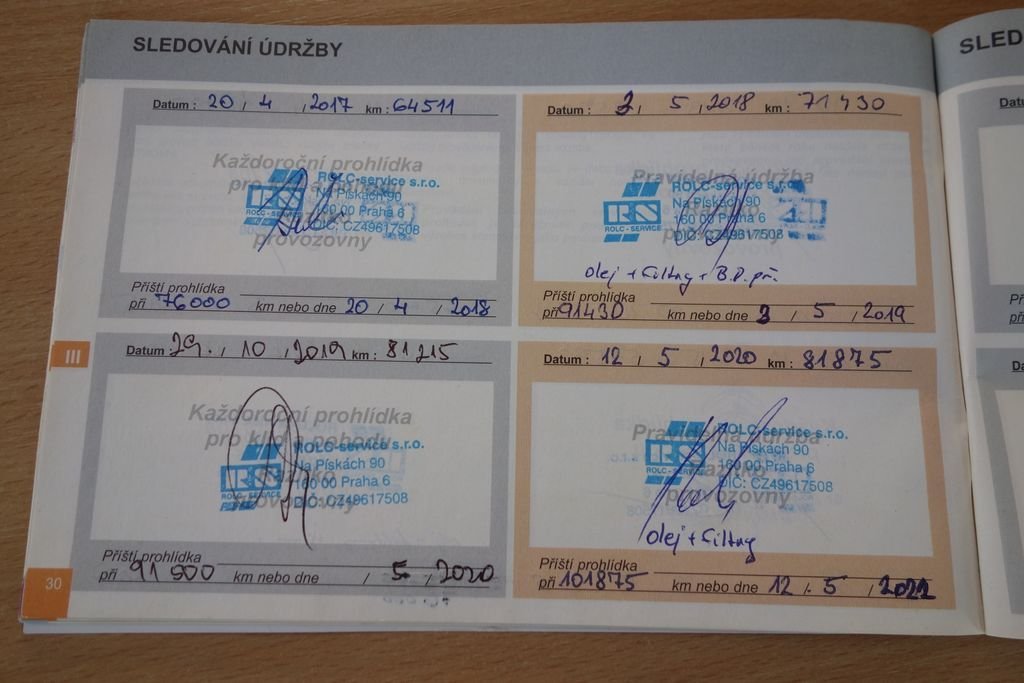 SLEDOVÁNÍ ÚDRŽBY
SLED
Datum : 20 / 4 / 2017 km : 64511
Každoroční prohlídka
ROLC-service s.r.o.
Na Pískách 90
160 00 Praha 6
DIČ: CZ49617508
ROLC - SERVICE
provozovny
Příští prohlídka
při 76000 km nebo dne 20 / 4 / 2018
Datum : 2 / 5 / 2018 km : 71430
Pravidelná údržba
ROLC-service s.r.o.
Na Pískách 90
160 00 Praha 6
DIČ: CZ49617508
ROLC - SERVICE
provozovny
olej + filtry + B.D. př.
Příští prohlídka
při 91430 km nebo dne 3 / 5 / 2019
III
Datum : 29. / 10 / 2019 km : 81215
Každoroční prohlídka
pro klid a pohodu
ROLC-service s.r.o.
Na Pískách 90
160 00 Praha 6
DIČ: CZ49617508
ROLC - SERVICE
provozovny
Příští prohlídka
při 91 500 km nebo dne / 5 / 2020
Datum : 12 / 5 / 2020 km : 81875
Pravidelná údržba
ROLC-service s.r.o.
Na Pískách 90
160 00 Praha 6
DIČ: CZ49617508
ROLC - SERVICE
provozovny
olej + filtry
Příští prohlídka
při 101875 km nebo dne 12 . 5 / 2022
30